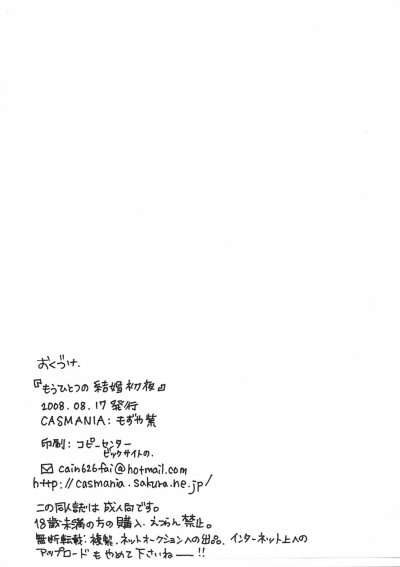 おくづけ.
『もうひとつの結婚初夜』
2008.08.17 発行
CASMANIA: もずや紫
印刷: コピーセンター
ビックサイトの.
✉ cain626fai@hotmail.com
http://casmania.sakura.ne.jp/
この同人誌は成人向です。
18歳未満の方の購入、えつらん禁止。
無断転載、複製、ネットオークションへの出品、インターネット上への
アップロードもやめて下さいねー!!